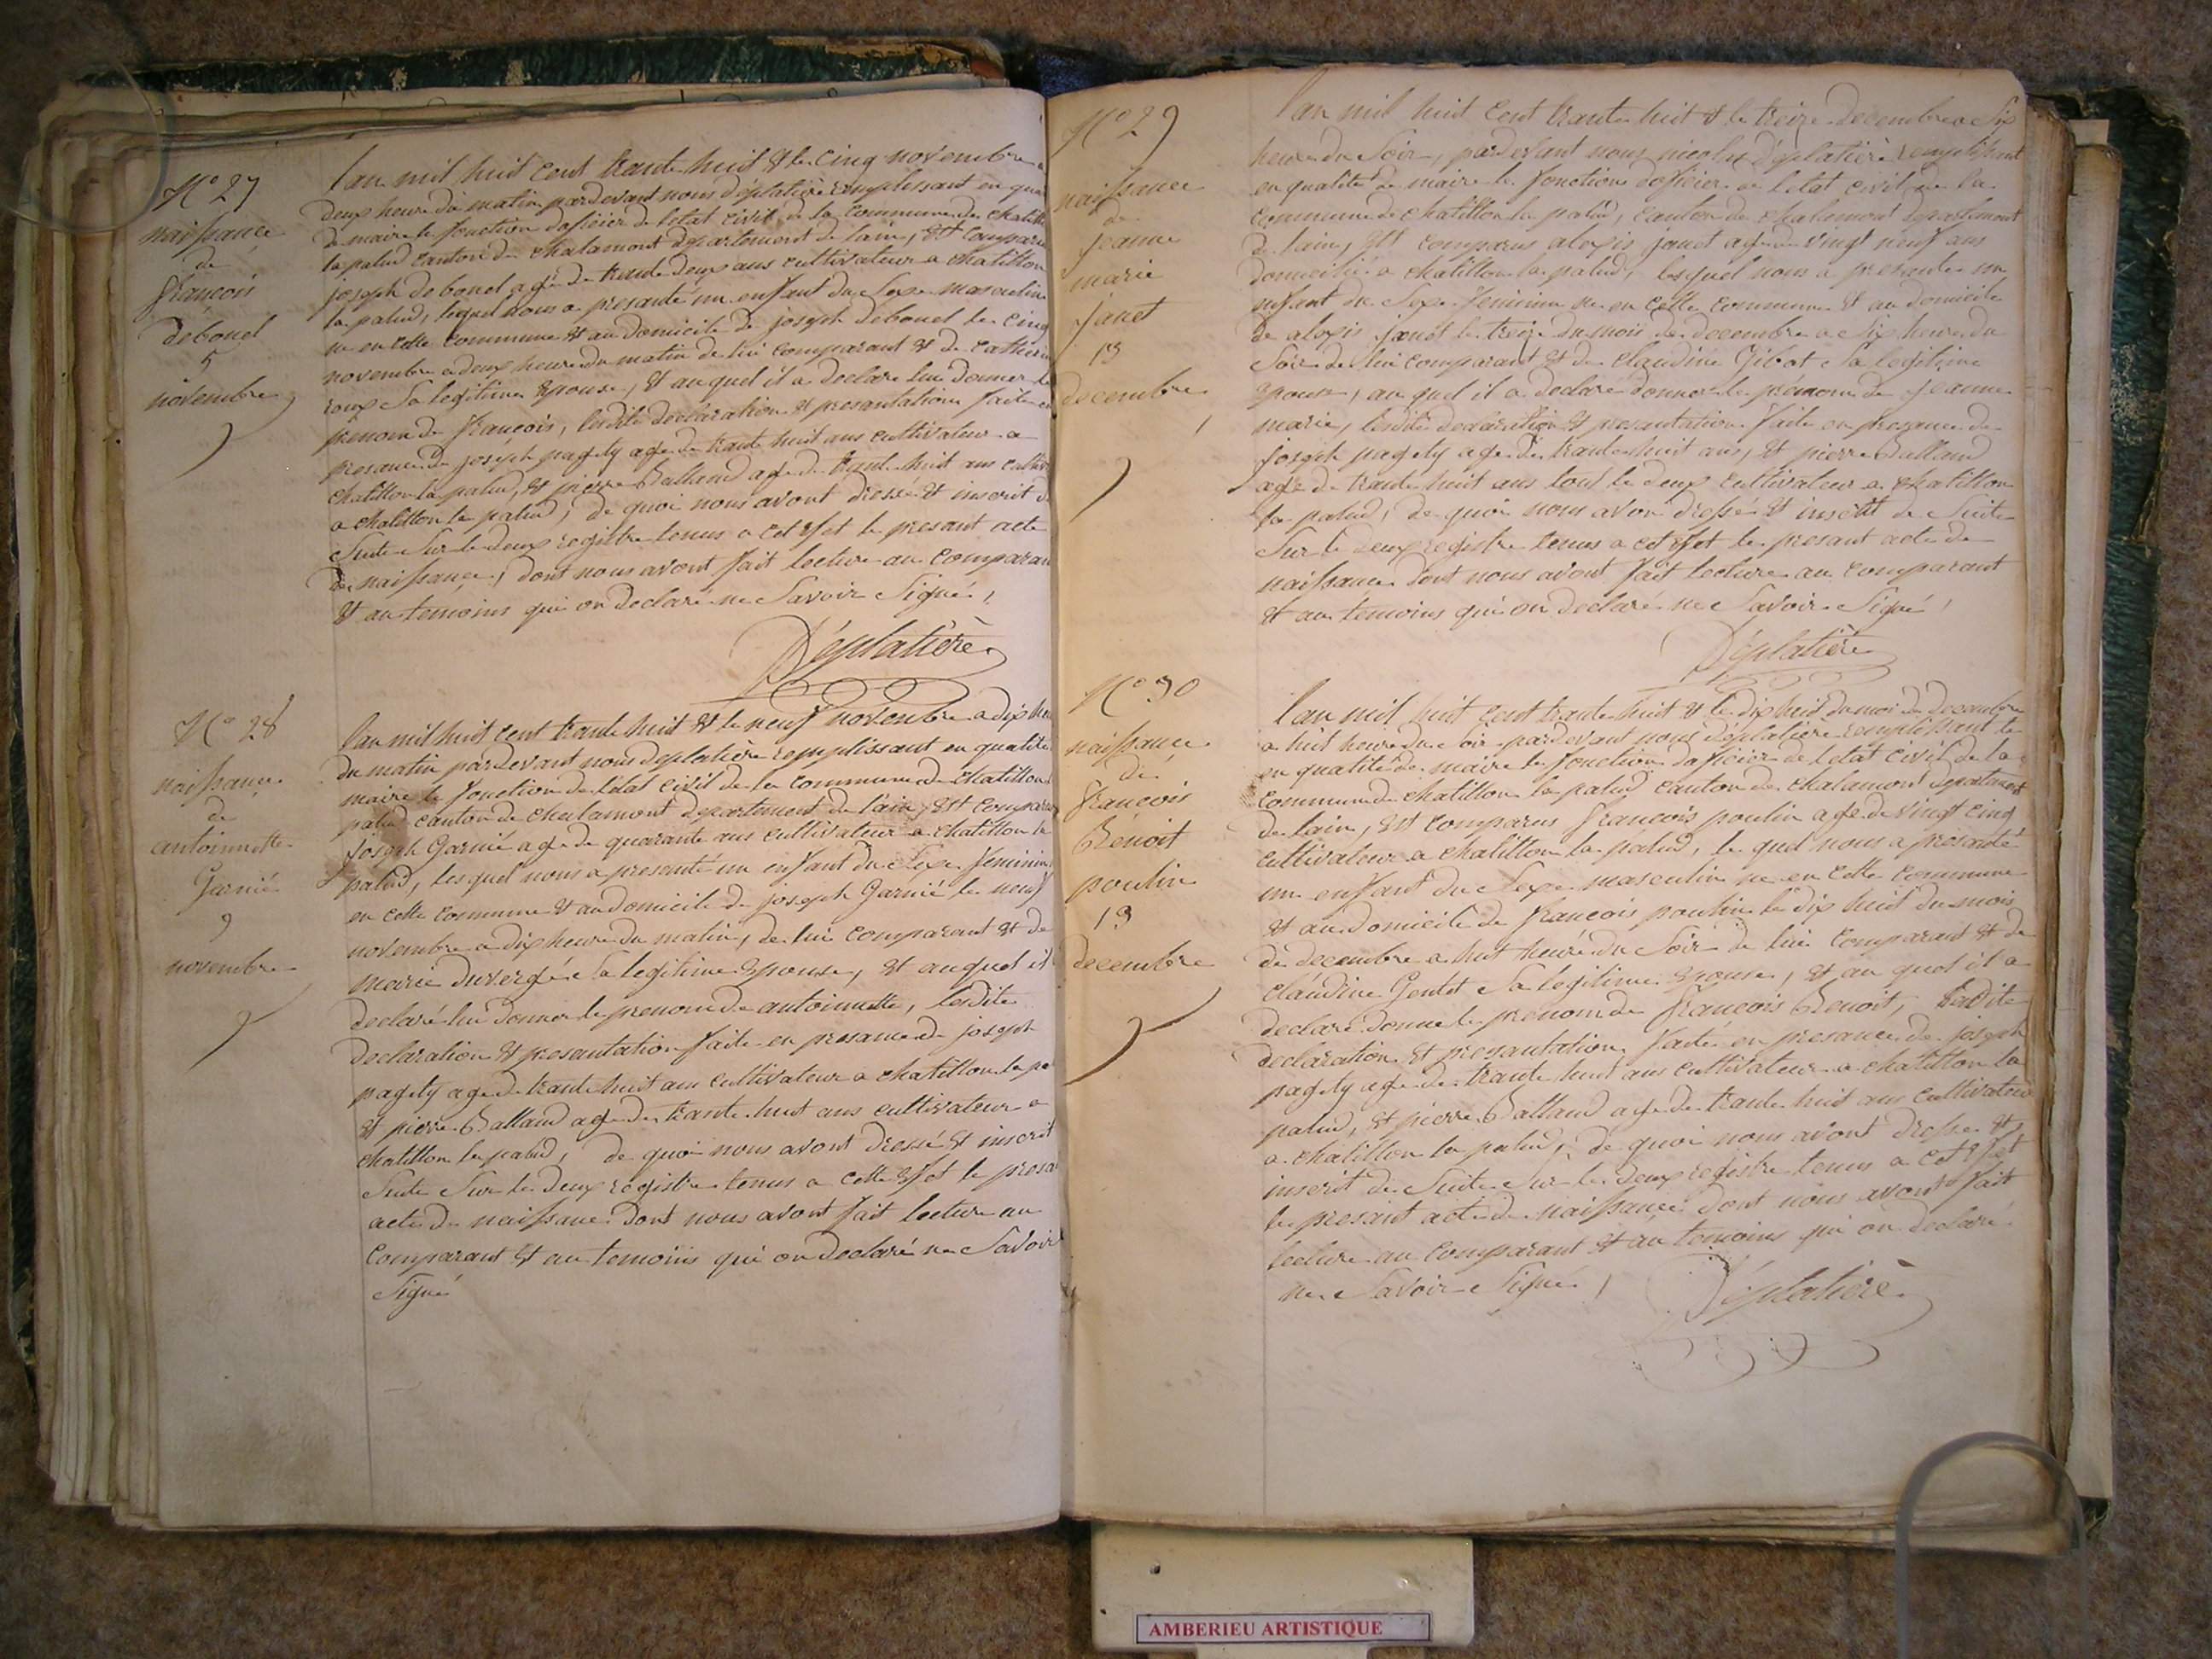 N° 27
naissance
de
françois
debouel
5
novembre
lan mil huit cent trante huit & le cinq novembre a
deux heure du matin pardevant nous déplatière remplissant en qua
de maire le fonction doficier de letat civil de la commune de chatill
la palud canton de chalamont departement de lain, est compar
joseph debouel agé de trante deux ans cultivateur a chatillon
la palud, lequel nous a presanté un enfant du sexe masculin
ne en cette commune & au domicile de joseph debouel le cinq
novembre a deux heure du matin de lui comparant & de catherin
roux sa legitime epouse, & au quel il a declaré lui donner le
prenom de françois, lesdite declaration & presantation faite en
presance de joseph pagety agé de trante huit ans cultivateur a
chatillon la palud, & pierre Balland agé de trante huit ans cultiv
a chatillon la palud, de quoi nous avont dressé & inscrit de
suite sur le deux registre tenus a cet effet le presant acte
de naissance, dont nous avont fait lecture au comparan
& au temoins qui on declaré ne savoir signé,
Déplatière
N° 28
naissance
de
antoinette
Garnié
9
novembre
lan mil huit cent trante huit & le neuf novembre a dix heu
du matin pardevant nous deplatière remplissant en qualité
maire le fonction de létat civil de la commune de chatillon
palud canton de chalamont departement de l'ain, est compar
joseph Garnié agé de quarante ans cultivateur a chatillon la
palud, lesquel nous a presenté un enfant du sexe feminin
en cette commune & au domicile de joseph Garnié le neuf
novembre a dix heure du matin, de lui comparant & de
marie duvergée sa legitime epouse, & au quel il
declaré lui donner le prenom de antoinette, lesdite
declaration & presentation faite en presance de joseph
pagety agé de trante huit ans cultivateur a chatillon la pa
& pierre Balland agé de trante huit ans cultivateur a
chatillon la palud, de quoi nous avont dressé & inscrit
suite sur le deux registre tenus a cette effet le presa
acte de naissance dont nous avont fait lecture au
comparant & au temoins qui on declaré ne savoir
signé
N° 29
naissance
de
jeanne
marie
janet
13
decembre
lan mil huit cent trante huit & le treize decembre a six
heure du soir, pardevant nous nicolas déplatière remplissant
en qualité de maire le fonction doficier de letat civil de la
commune de chatillon la palud, canton de chalamont departement
de lain, est comparus alexis janet agé de vingt neuf ans
domicilié a chatillon la palud, lesquel nous a presanté un
enfant du sexe feminin ne en cette commune & au domicile
de alexis janet le treize du mois de decembre a six heure du
soir de lui comparant & de claudine Jibot sa legitime
epouse, au quel il a declaré donner le prenom de jeanne
marie, lesdite declaration & presantation faite en presance de
joseph pagety agé de trante huit ans, & pierre Balland
agé de trante huit ans tout le deux cultivateur a chatillon
la palud, de quoi nous avon dressé & inscrit de suite
sur le deux registre tenus a cet effet le presant acte de
naissance dont nous avont fait lecture au comparant
& au temoins qui on declaré ne savoir signé,
Déplatière
N° 30
naissance
de
françois
Benoit
poulin
18
decembre
lan mil huit cent trante huit & le dix huit du moi de decembre
a huit heure du soir pardevant nous déplatière remplissant le
en qualité de maire le fonction doficier de letat civil de la
commune de chatillon la palud canton de chalamont departement
de lain, est comparus françois poulin agé de vingt cinq
cultivateur a chatillon la palud, le quel nous a presanté
un enfant du sexe masculin ne en cette commune
& au domicile de françois poulin le dix huit du mois
de decembre a huit heure du soir de lui comparant & de
claudine Gentet sa legitime epouse, & au quel il a
declaré donne le prenom de françois Benoit, lesdite
declaration & presantation faite en presance de joseph
pagety agé de trante huit ans cultivateur a chatillon la
palud, & pierre Balland agé de trante huit ans cultivateur
a chatillon la palud, de quoi nous avont dressé &
inscrit de suite sur le deux registre tenus a cet effet
le presant acte de naissance dont nous avont fait
lecture au comparant & au temoins qui on declaré
ne savoir signé,
Déplatière
AMBERIEU ARTISTIQUE